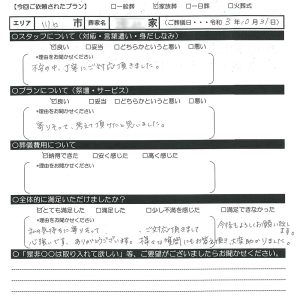 【今回ご依頼されたプラン】 □一般葬 ☑家族葬 □一日葬 □火葬式
エリア 市 葬家名 家 (ご葬儀日・・令和3年10月31日)
○スタッフについて(対応・言葉遣い・身だしなみ)
☑良い □妥当 □どちらかというと悪い □悪い
*理由をお聞かせください
丁寧にご対応頂きました。
○プランについて(祭壇・サービス)
☑良い □妥当 □どちらかというと悪い □悪い
*理由をお聞かせください
寄りそって、考えて頂けたと思いました。
○葬儀費用について
☑納得できた □安く感じた □高く感じた
*理由をお聞かせください
○全体的に満足いただけましたか?
☑とても満足した □満足した □少し不満を感じた □満足できなかった
*理由をお聞かせください
に寄りそって ご対応頂きまして
心強いです。ありがとうございます。 質問にもお答え頂き大変助かりました。
今後もよろしくお願い致します。
○「是非○○は取り入れて欲しい」等、ご要望がございましたらお聞かせください。